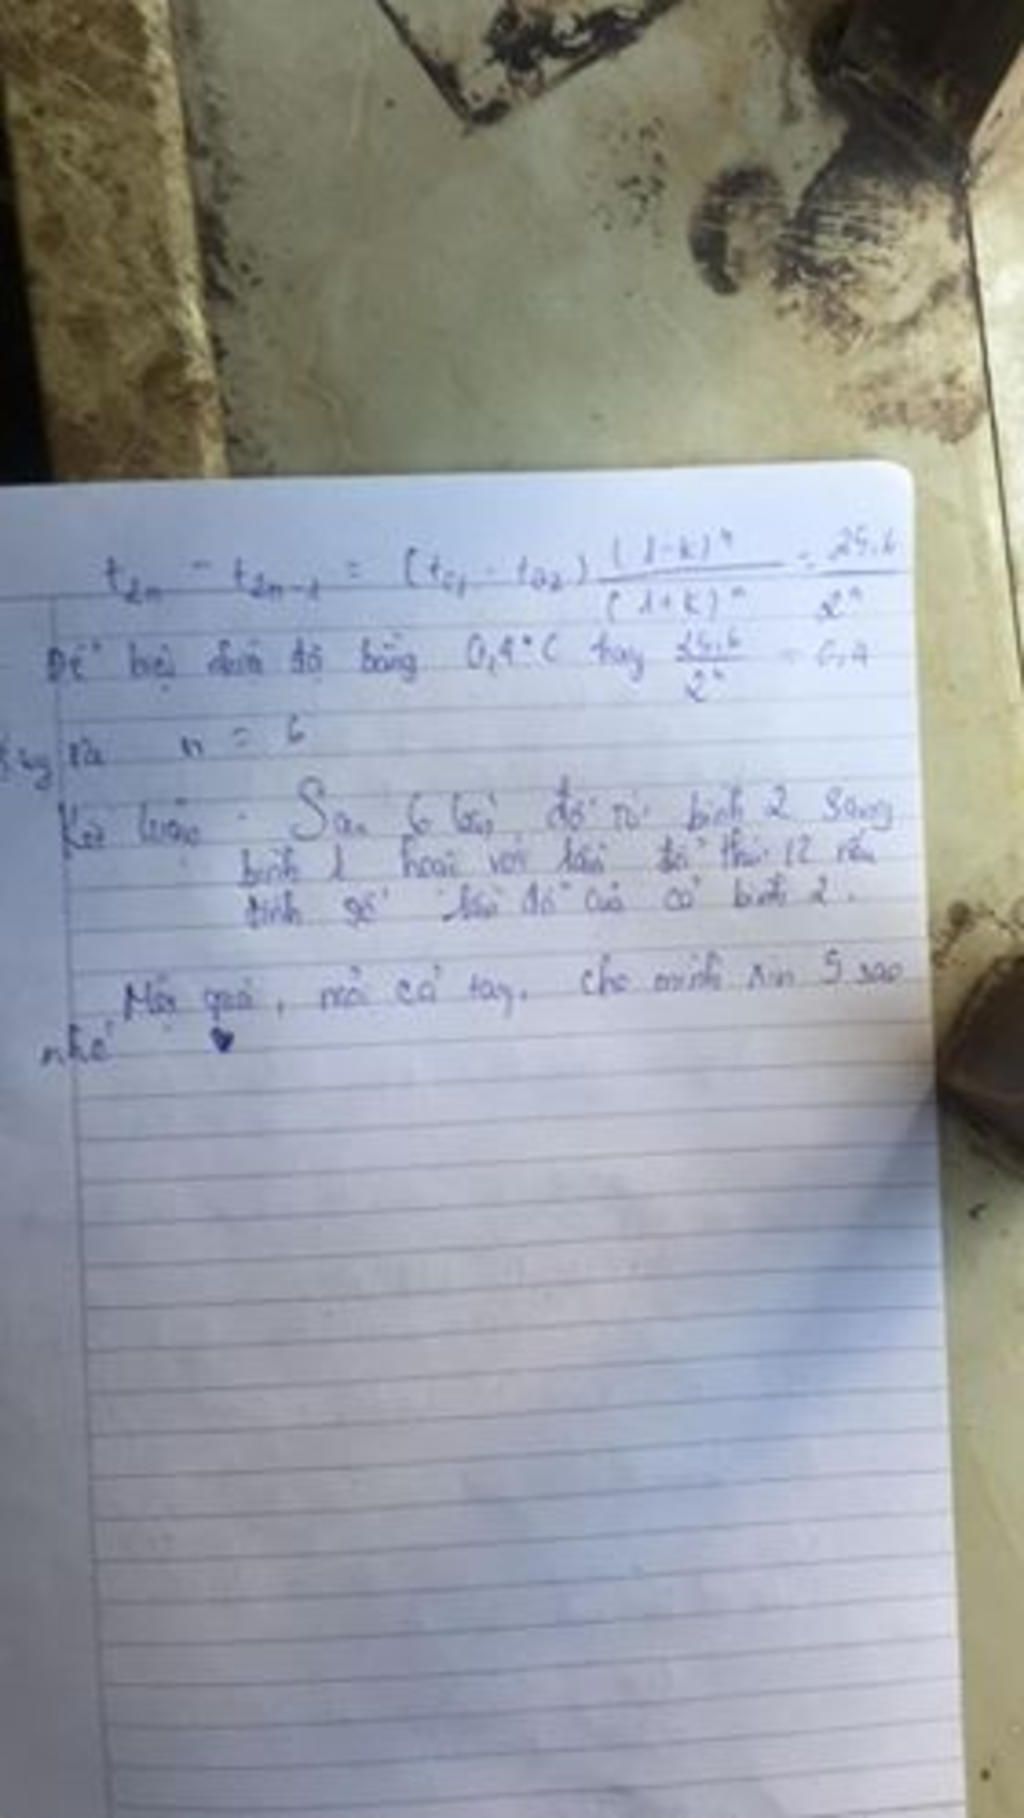 t₂ₙ - t₂ₙ₋₁ = (t₀₁ - t₀₂) (1-k)ⁿ / (1+k)ⁿ = 25,6 / 2ⁿ
Để hiệu độ bằng 0,4°C hay 25,6 / 2ⁿ = 0,4
ra n = 6
Kết luận : Sau 6 lần đổ từ bình 2 sang
bình 1 hoặc với lần đổ thứ 12 nếu
tính số lần đổ của cả bình 2.
Mỏi quá, mỏi cả tay. cho mình xin 5 sao
nhé